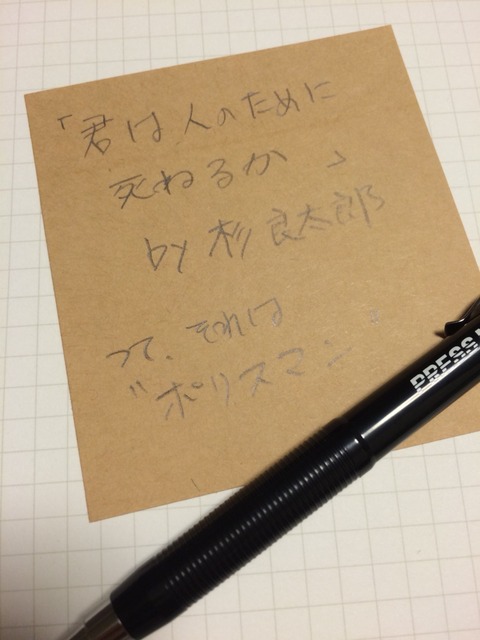 「君は人のために
死ねるか 」
by 杉良太郎
って、それは
"ポリスマン"
PRESS